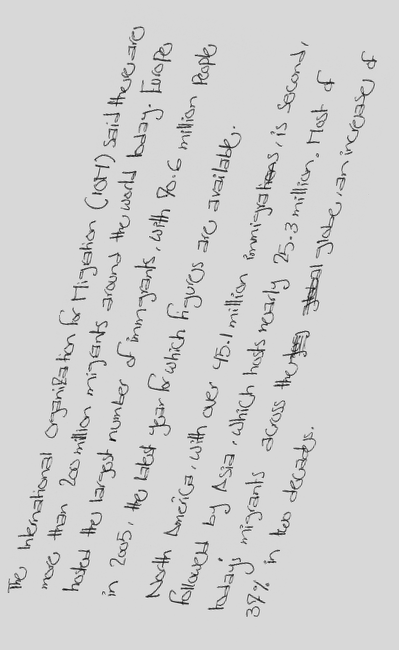 The International Organization for Migration (IOM) said there are
more than 200 million migrants around the world today. Europe
hosted the largest number of immigrants, with 70.6 million People
in 2005, the latest year for which figures are available.
North America, with over 45.1 million immigrations, is second,
followed by Asia, which hosts nearly 25.3 million. Most of
today's migrants across the globe, an increase of
37% in two decades.